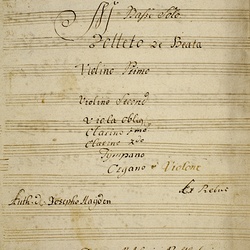 Basso Solo
Motteto de Beata
Violino Primo
Violino Secondo
Viola oblig:
Clarino 1mo
Clarino 2do
Tympano
Organo e Violone
Auth: D: Josepho Haydén